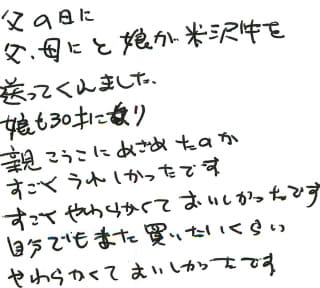 父の日に
父、母にと娘が米沢牛を
送ってくれました。
娘も30才になり
親こうこにめざめたのか
すごくうれしかったです
すごくやわらかくておいしかったです
自分でもまた買いたいくらい
やわらかくておいしかったです